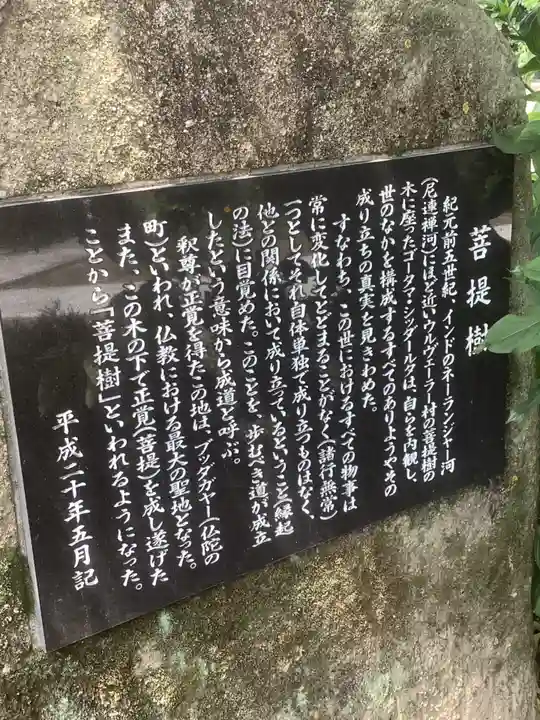 菩提樹
紀元前五世紀、インドのネーランジャー河
(尼連禅河)にほど近いウルヴェーラー村の菩提樹の
木に座ったゴータマ・シッダールタは、自らを内観し、
世のなかを構成するすべてのありようやその
成り立ちの真実を見きわめた。
すなわち、この世におけるすべての物事は
常に変化してとどまることがなく(諸行無常)
一つとしてそれ自体単独で成り立つものはなく、
他との関係において成り立っているということ(縁起
の法)に目覚めた。このことを、歩むべき道が成立
したという意味から成道と呼ぶ。
釈尊が正覚を得たこの地は、ブッダガヤー(仏陀の
町)といわれ、仏教における最大の聖地となった。
また、この木の下で正覚(菩提)を成し遂げた
ことから「菩提樹」といわれるようになった。
平成二十年五月記